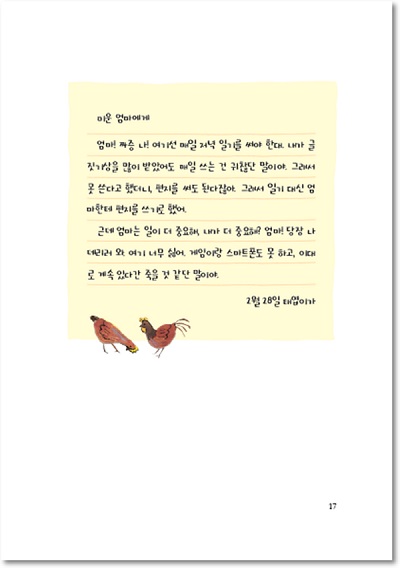 미운 엄마에게
엄마! 짜증 나! 여기선 매일 저녁 일기를 써야 한대. 내가 글
짓기상을 많이 받았어도 매일 쓰는 건 귀찮단 말이야. 그래서
못 쓴다고 했더니, 편지를 써도 된다잖아. 그래서 일기 대신 엄
마한테 편지를 쓰기로 했어.
근데 엄마는 일이 더 중요해, 내가 더 중요해? 엄마! 당장 나
데리러 와. 여기 너무 싫어. 게임이랑 스마트폰도 못 하고, 이대
로 계속 있다간 죽을 것 같단 말이야.
2월 28일 태엽이가
17